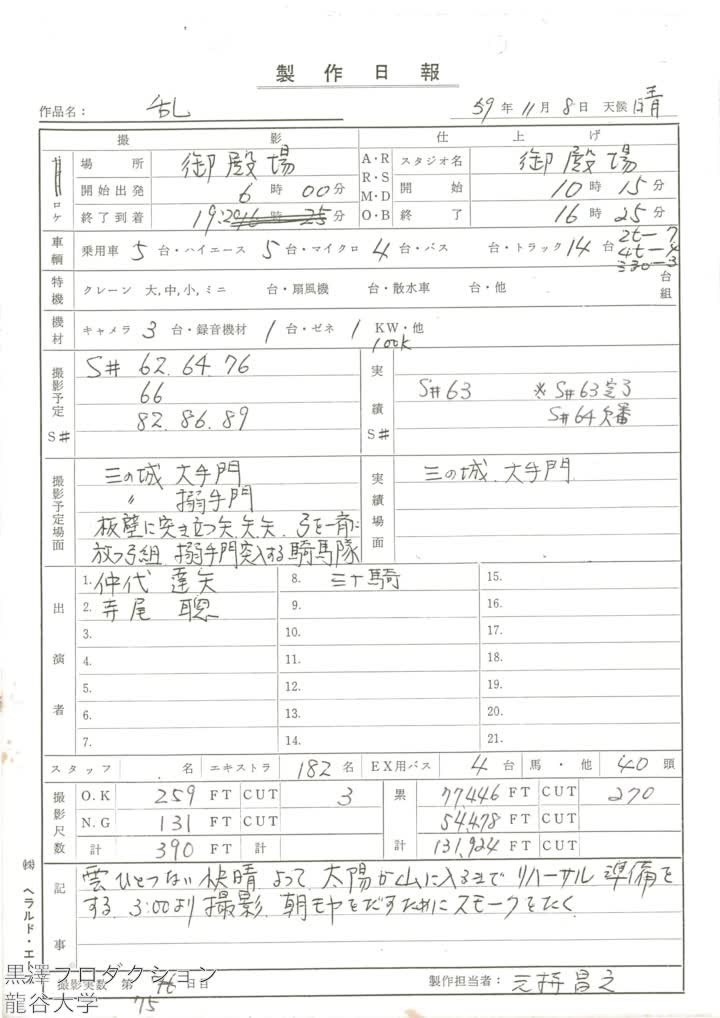 製作日報
作品名： 乱 59年11月8日 天候 晴
撮影 仕上げ
ロケ 場所 御殿場 A・R R・S M・D O・B スタジオ名 御殿場
開始出発 6時00分 開始 10時15分
終了到着 19:20 16時25分 終了 16時25分
車輌 乗用車 5台・ハイエース 5台・マイクロ 4台・バス 台・トラック 14台 2t-7 4t-4 330-3
特機 クレーン 大,中,小,ミニ 台・扇風機 台・散水車 台・他 台組
機材 キャメラ 3台・録音機材 1台・ゼネ 1 KW・他
100K
撮影予定 S# S# 62. 64. 76
66
82. 86. 89
実績 S# S#63 ※S#63完了
S#64欠番
撮影予定場面 三の城 大手門
〃 搦手門
板壁に突き立つ矢.矢.矢. 弓を一斉に
放つ弓組 搦手門突入する騎馬隊
実績場面 三の城. 大手門
出演者 1. 仲代達矢 8. 三十騎 15.
2. 寺尾聰 9. 16.
3. 10. 17.
4. 11. 18.
5. 12. 19.
6. 13. 20.
7. 14. 21.
スタッフ 名 エキストラ 182名 EX用バス 4台 馬・他 40頭
撮影尺数 O.K 259 FT CUT 3 累計 77,446 FT CUT 270
N.G 131 FT 54,478 FT
計 390 FT 計 131,924 FT
記事 雲ひとつない快晴 よって、太陽が山に入るまでリハーサル 準備を
する. 3:00より撮影. 朝モヤをだすためにスモークをたく
撮影実数 第 日目 製作担当者：
75
㈱ ヘラルド・エース
黒澤プロダクション
龍谷大学